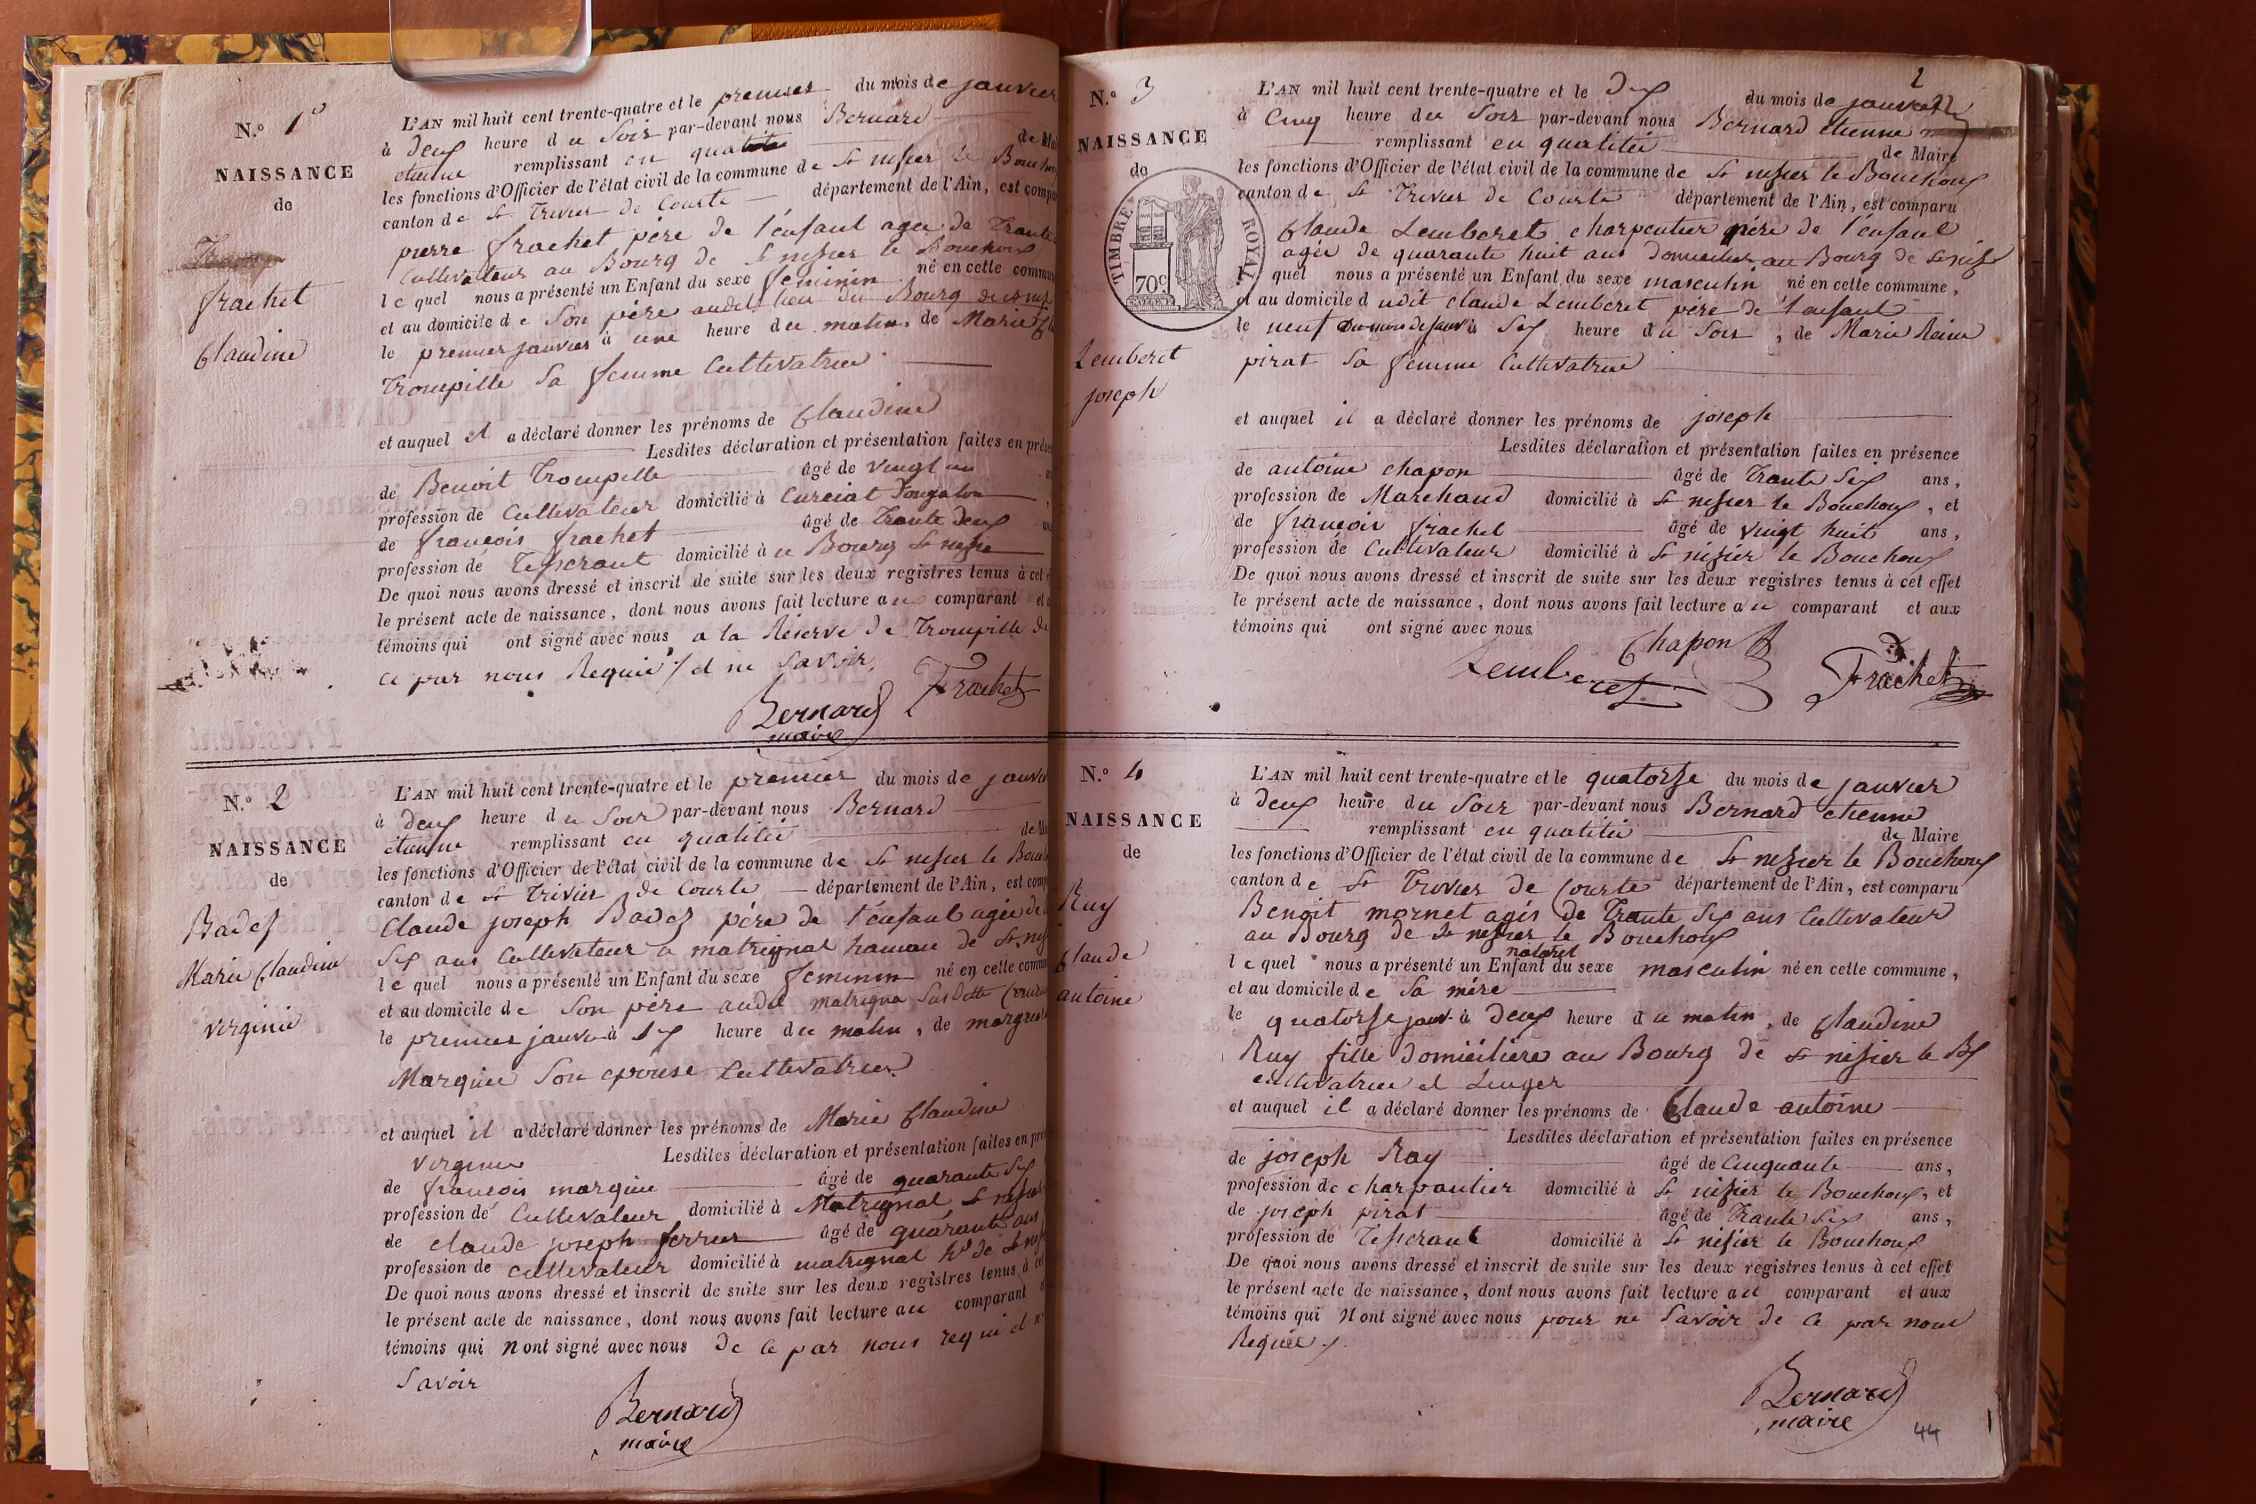 N.º 1er
NAISSANCE
de
frachet
Claudine
L'AN mil huit cent trente-quatre et le premier du mois de janvier
à deux heure du Soir par-devant nous Bernard
etienne remplissant en qualité de
les fonctions d'Officier de l'état civil de la commune de St nisier le Bouchoux
canton de St Trivier de Courte département de l'Ain, est comparu
pierre frachet père de l'énfant agée de Trante
Cultivateur au Bourg de St nisier le Bouchoux
lequel nous a présenté un Enfant du sexe feminin né en cette commune
et au domicile de Son père audit lieu du Bourg de St nisier
le premier janvier à une heure du matin, de Marie
Trompille Sa femme Cultivatrice
et auquel il a déclaré donner les prénoms de Claudine
Lesdites déclaration et présentation faites en présence
de Benoit Trompille âgé de vingt un
profession de Cultivateur domicilié à Curciat Dongalon
de françois frachet âgé de Trante deux
profession de Tisserant domicilié à u Bourg St nisier
De quoi nous avons dressé et inscrit de suite sur les deux registres tenus à cet
le présent acte de naissance, dont nous avons fait lecture au comparant et
témoins qui ont signé avec nous a la Réserve de Trompille de
ce par nous Requie / et ne Savoir.
Bernard Frachet
maire
N.º 2
NAISSANCE
de
Badez
Marie Claudine
virginie
L'AN mil huit cent trente-quatre et le premier du mois de janvier
à deux heure du Soir par-devant nous Bernard
étienne remplissant en qualitée de
les fonctions d'Officier de l'état civil de la commune de St nisier le Bouch
canton de St Trivier de Courte département de l'Ain, est comp
Claude joseph Badez père de l'énfant agée de
Six ans Cultivateur a matrignat hamau de St nis
lequel nous a présenté un Enfant du sexe feminin né en cette commu
et au domicile de Son père audit matrigna Susdette
le premier janvier à Six heure du matin, de margue
Marguin Son epouse Cultivatrice
et auquel il a déclaré donner les prénoms de Marie Claudine
Virginie Lesdites déclaration et présentation faites en pré
de françois marguin âgé de quarante Six
profession de Cultivateur domicilié à Matrignat St nisier
de claude joseph ferrier âgé de quarante ans
profession de cultivateur domicilié à matrignat hd de St nis
De quoi nous avons dressé et inscrit de suite sur les deux registres tenus à
le présent acte de naissance, dont nous avons fait lecture au comparant
témoins qui n ont signé avec nous de ce par nous requi et n
Savoir
Bernard
maire
2
N.º 3
NAISSANCE
de
TIMBRE ROYAL
70c
Lemberet
joseph
L'AN mil huit cent trente-quatre et le Dix du mois de janvier
à Cinq heure du Soir par-devant nous Bernard etienne
remplissant en qualitée de Maire
les fonctions d'Officier de l'état civil de la commune de St nisier le Bouchoux
canton de St Trivier de Courte département de l'Ain, est comparu
Claude Lemberet charpentier père de l'énfant
agée de quarante huit ans domicilier au Bourg de St nisr
quel nous a présenté un Enfant du sexe masculin né en cette commune,
et au domicile d udit claude Lemberet père de l'enfant
le neuf du mois de janv à Six heure du Soir, de Marie Reine
pirat Sa femme Cultivatrice
et auquel il a déclaré donner les prénoms de joseph
Lesdites déclaration et présentation faites en présence
de antoine chapon âgé de Trante Six ans,
profession de Marchand domicilié à St nisier le Bouchoux, et
de françois frachet âgé de vingt huit ans,
profession de Cultivateur domicilié à St nisier le Bouchoux
De quoi nous avons dressé et inscrit de suite sur les deux registres tenus à cet effet
le présent acte de naissance, dont nous avons fait lecture au comparant et aux
témoins qui ont signé avec nous.
Chapon
Lemberet Frachet
N.º 4
NAISSANCE
de
Ruy
Claude
antoine
L'AN mil huit cent trente-quatre et le quatorze du mois de janvier
à deux heure du Soir par-devant nous Bernard etienne
remplissant en qualitée de Maire
les fonctions d'Officier de l'état civil de la commune de St nizier le Bouchoux
canton de St Trivier de Courte département de l'Ain, est comparu
Benoit mornet agés de Trante Six ans Cultivateur
au Bourg de St nisier le Bouchoux
naturel
lequel nous a présenté un Enfant du sexe masculin né en cette commune,
et au domicile de Sa mére
le quatorze janv à deux heure du matin, de Claudine
Ruy fille domicilière au Bourg de St nisier le Bx
cultivatrice et Linger
et auquel il a déclaré donner les prénoms de Claude antoine
Lesdites déclaration et présentation faites en présence
de joseph Ray âgé de Cinquante ans,
profession de charpantier domicilié à St nisier le Bouchoux, et
de joseph pirat âgé de Trante Six ans,
profession de Tisserant domicilié à St nisier le Bouchoux
De quoi nous avons dressé et inscrit de suite sur les deux registres tenus à cet effet
le présent acte de naissance, dont nous avons fait lecture au comparant et aux
témoins qui n ont signé avec nous pour ne Savoir de ce par nous
Requie /.
Bernard
maire
44